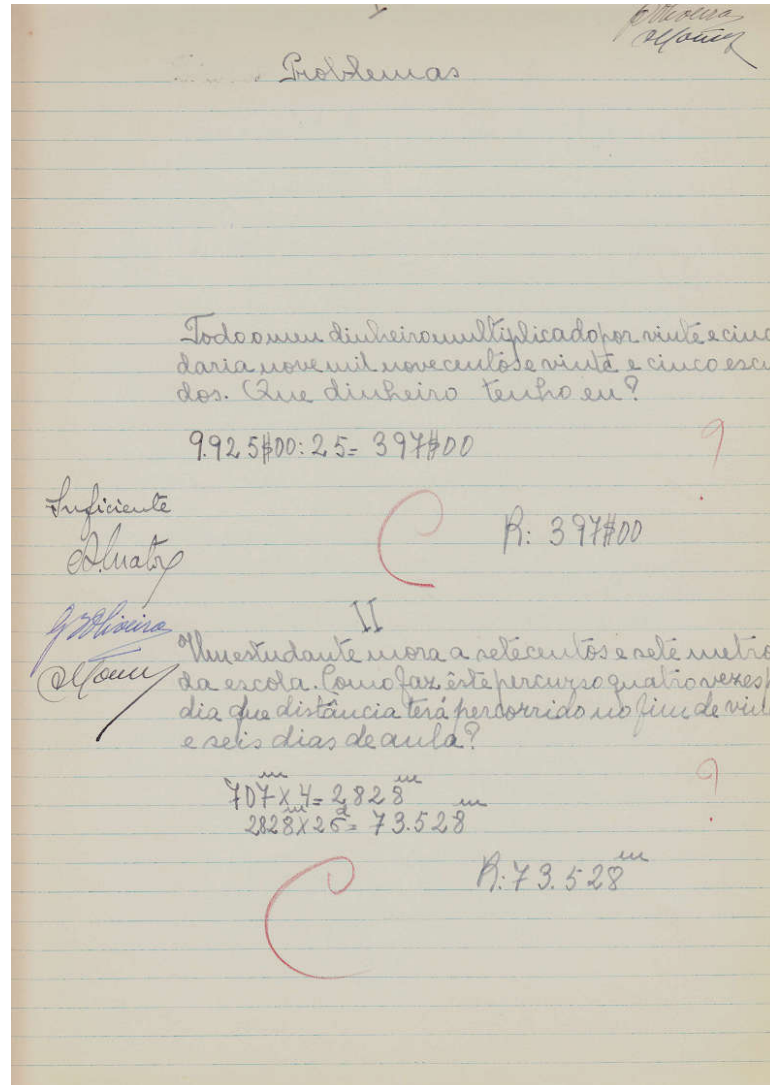 Problemas
Todo o meu dinheiro multiplicado por vinte e cinc
daria nove mil novecentos e vinte e cinco escu
dos. Que dinheiro tenho eu?
9.925$00:25= 397$00
?
Suficiente
C
R: 397$00
II
Um estudante mora a setecentos e sete metro
da escola. Como faz êste percurso quatro vezes p
dia que distância terá percorrido no fim de vint
e seis dias de aula?
707m x 4= 2.828m
2828m x 26d= 73.528m
?
R: 73.528m
C